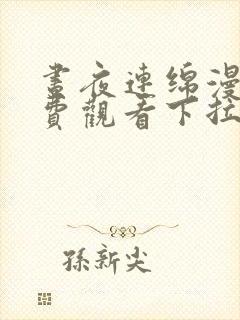 晝夜連綿漫
費觀看下拉
孫新尖